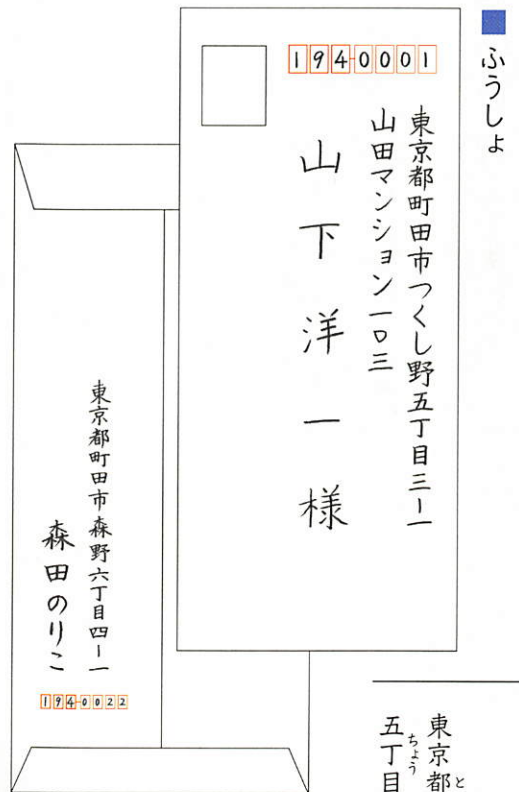 ふうしょ
1940001
東京都町田市つくし野五丁目三ー一
山田マンション一〇三
山下洋一様
東京都町田市森野六丁目四ー一
森田のりこ
194-0022
東京都と
五丁ちょう目